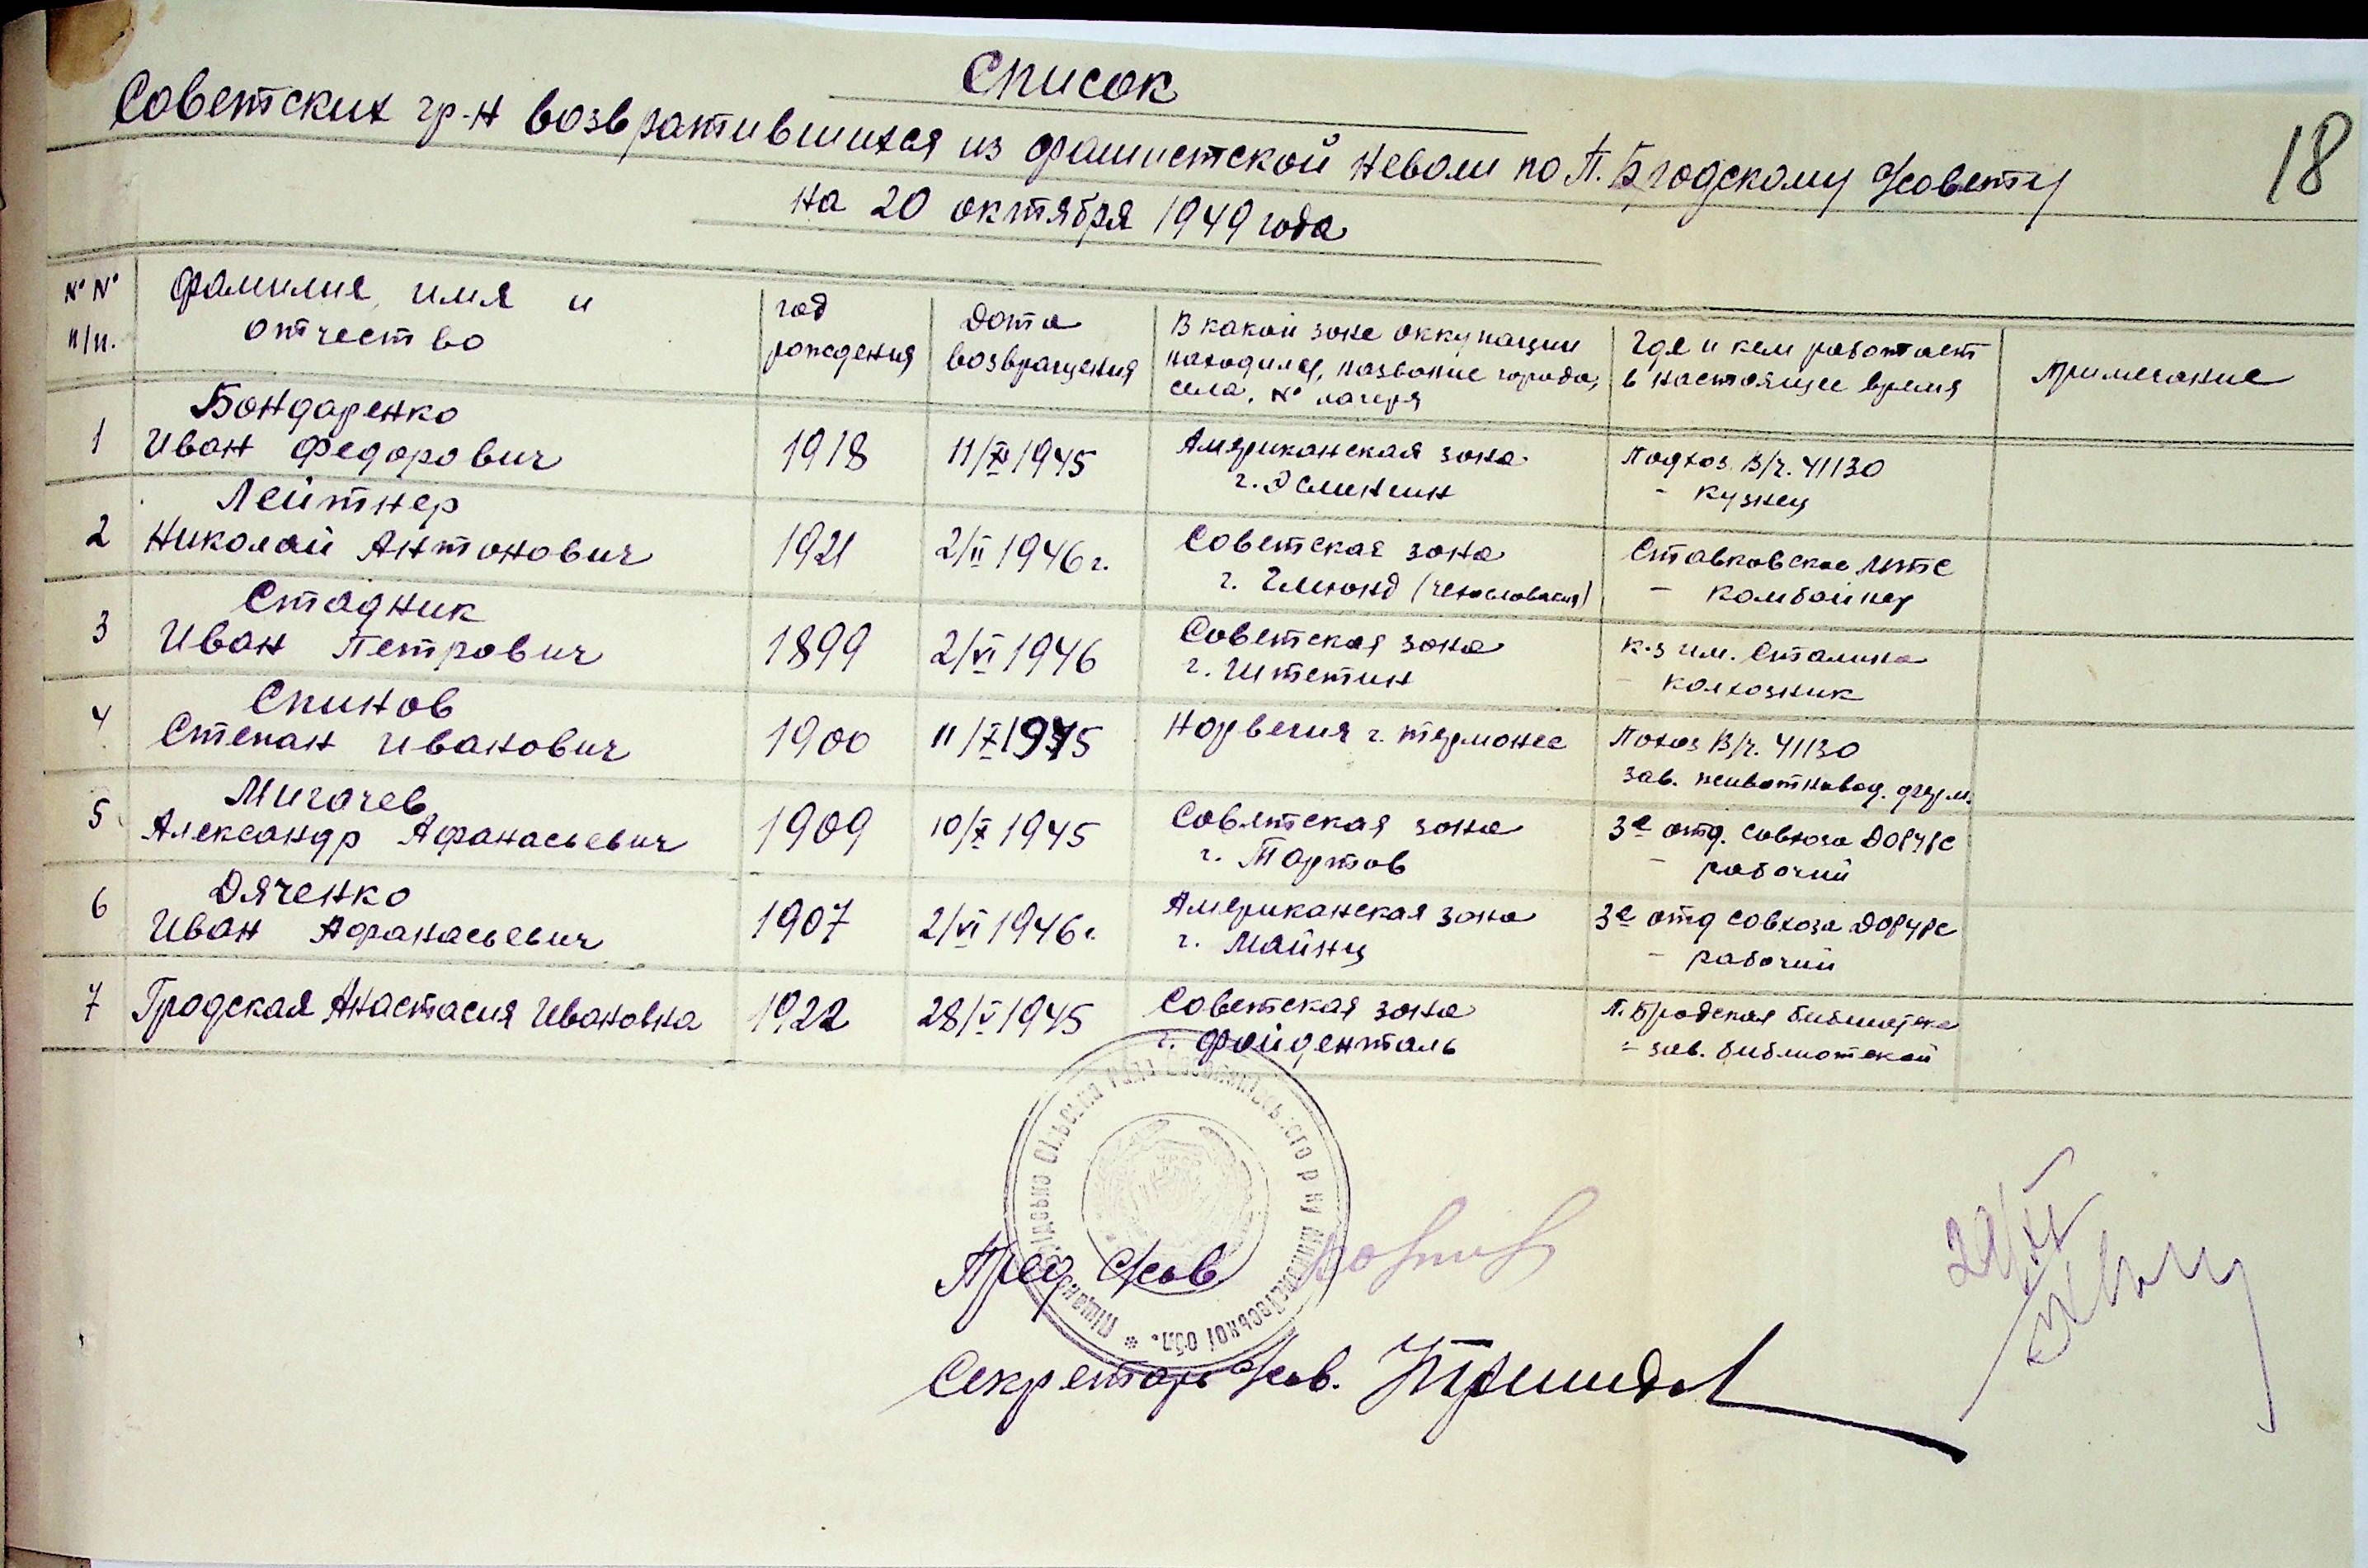 Список
Советских гр-н возвратившихся из фашистской неволи по П. Бродскому с/совету
на 20 октября 1949 года
18
№ №
п/п.
фамилия, имя и
отчество
год
рождения
дата
возвращения
В какой зоне оккупации
находился, название города,
села, № лагеря
Где и кем работает
в настоящее время
примечание
1
Бондаренко
Иван Федорович
1918
11/XI 1945
Американская зона
г. Эслингин
Подхоз. В/ч. 41130
- кузнец
2
Лейтнер
Николай Антонович
1921
2/II 1946 г.
Советская зона
г. Гмюнд (Чехословакия)
Ставковское МТС
- комбайнер
3
Стадник
Иван Петрович
1899
2/VI 1946
Советская зона
г. Штетин
к-з им. Сталина
- колхозник
4
Спинов
Степан Иванович
1900
11/X 1945
Норвегия г. Термонес
Похоз В/ч. 41130
зав. животновод. ферм.
5
Мигачев
Александр Афанасьевич
1909
10/X 1945
Советская зона
г. Тортов
3е отд. совхоза ДОРУРС
- рабочий
6
Дяченко
Иван Афанасьевич
1907
2/VI 1946 г.
Американская зона
г. Майнц
3е отд совхоза ДОРУРС
- рабочий
7
Гродская Анастасия Ивановна
1922
28/V 1945
Советская зона
г. Фройденталь
П. Бродская библиотека
- зав. библиотекой
Пред с/сов
Секретарь с/сов.